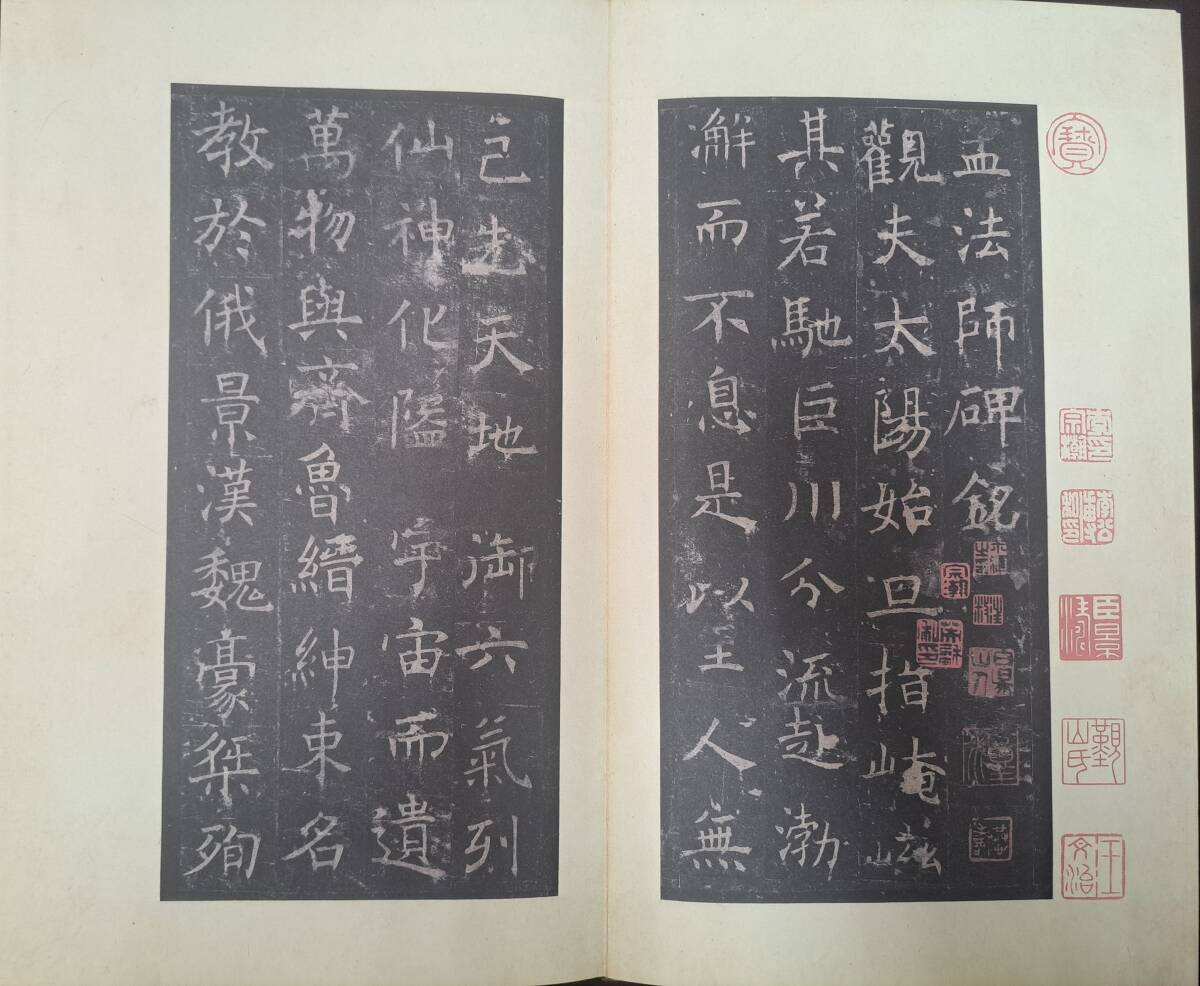 孟法師碑銘
觀夫太陽始旦指崦嵫
其若馳巨川分流赴渤
澥而不息是以至人無
己先天地御六氣列
仙神化隘宇宙而遺
萬物與齊魯縉紳束名
教於俄景漢魏豪桀殉
寶
臣景濤
汪文治